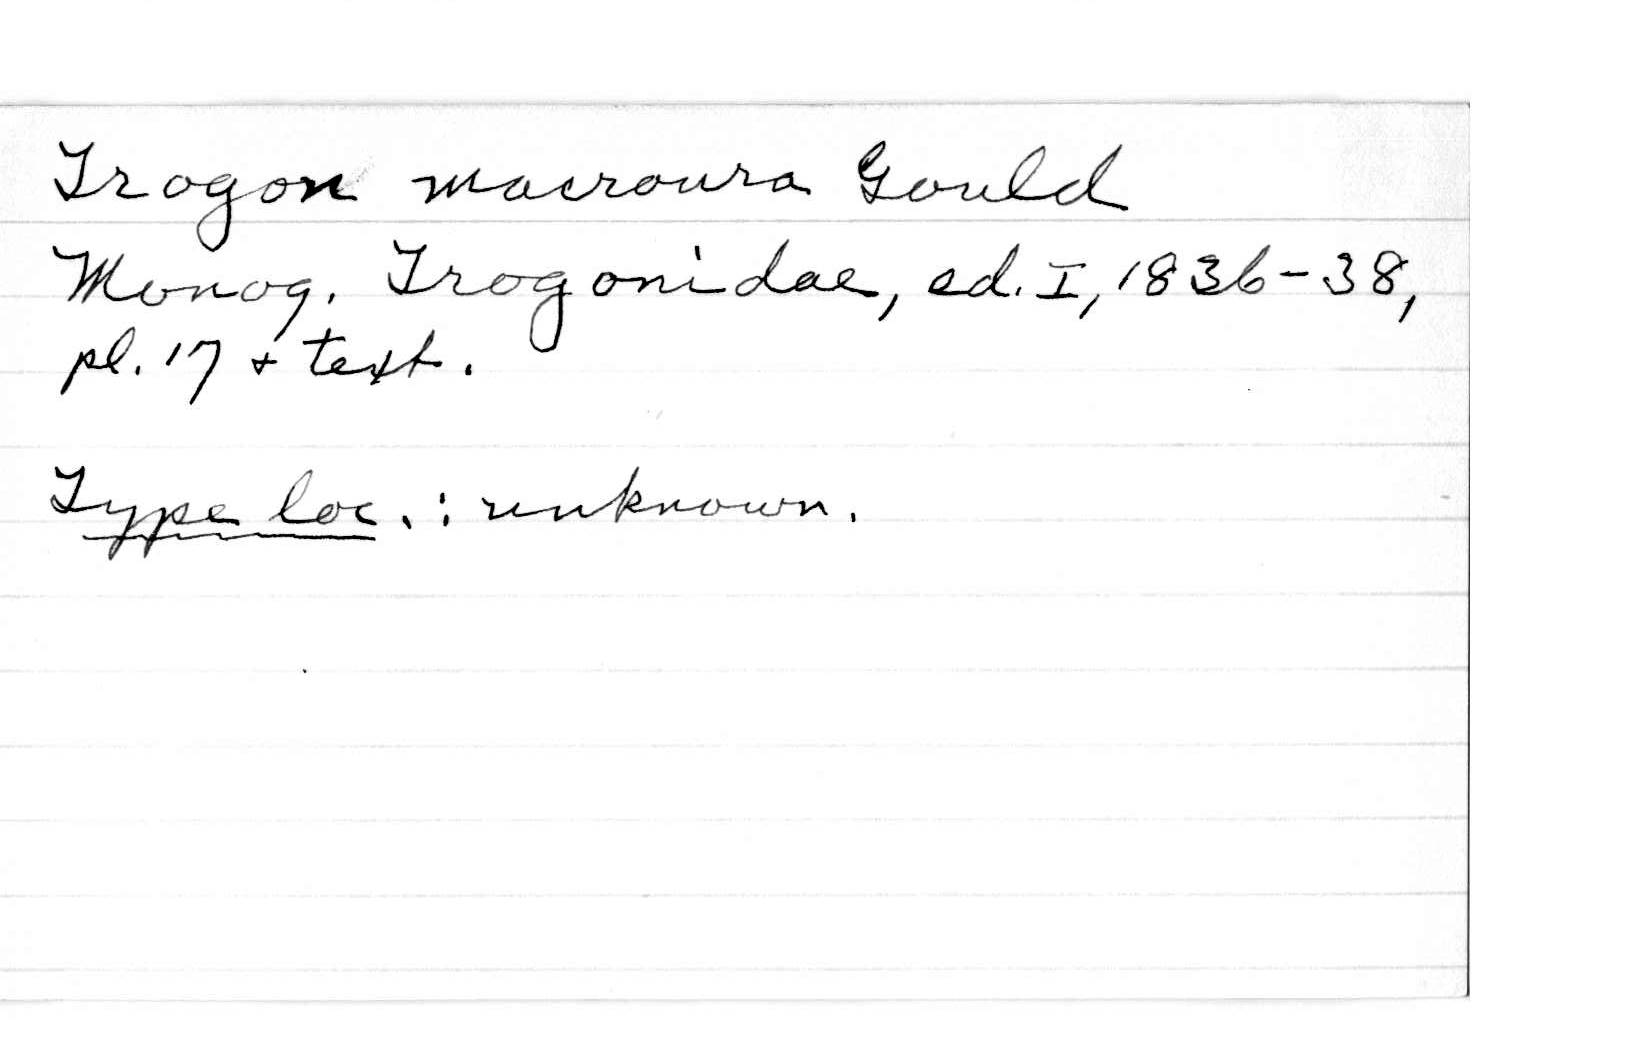 Trogon macroura Gould
Monog. Trogonidae, ed. I, 1836-38,
pl. 17 + text.
Type loc.: unknown.